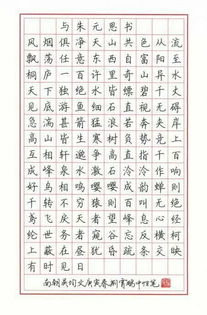 与朱元思书
风烟俱净天山共色从流
飘荡任意东西自富阳至
桐庐一百许里奇山异水
天下独绝水皆缥碧千丈
见底游鱼细石直视无碍
急湍甚箭猛浪若奔夹岸
高山皆生寒树负势竞上
互相轩邈争高直指千百
成峰泉水激石泠泠作响
好鸟相鸣嘤嘤成韵蝉则
千转不穷猿则百叫无绝
鸢飞戾天者望峰息心经
纶世务者窥谷忘反横柯
上蔽在昼犹昏疏条交映
有时见日
南朝吴均文庚寅春荆霄鹏中性笔